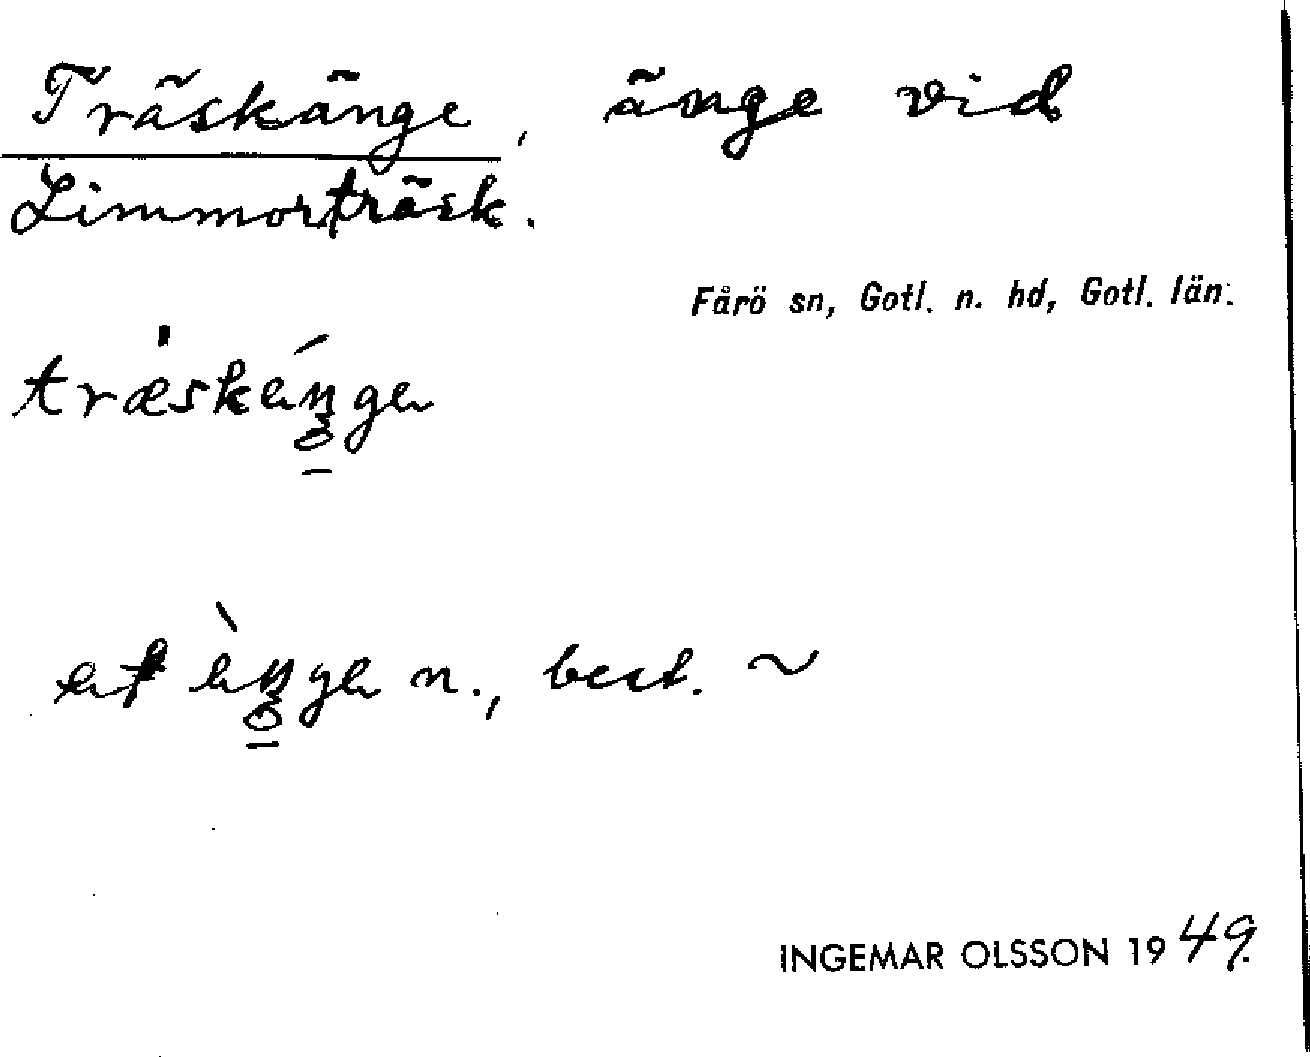 Träskänge, änge vid
Limmorträsk.
Fårö sn, Gotl. n. hd, Gotl. län.
n., best. ~
INGEMAR OLSSON 1949.